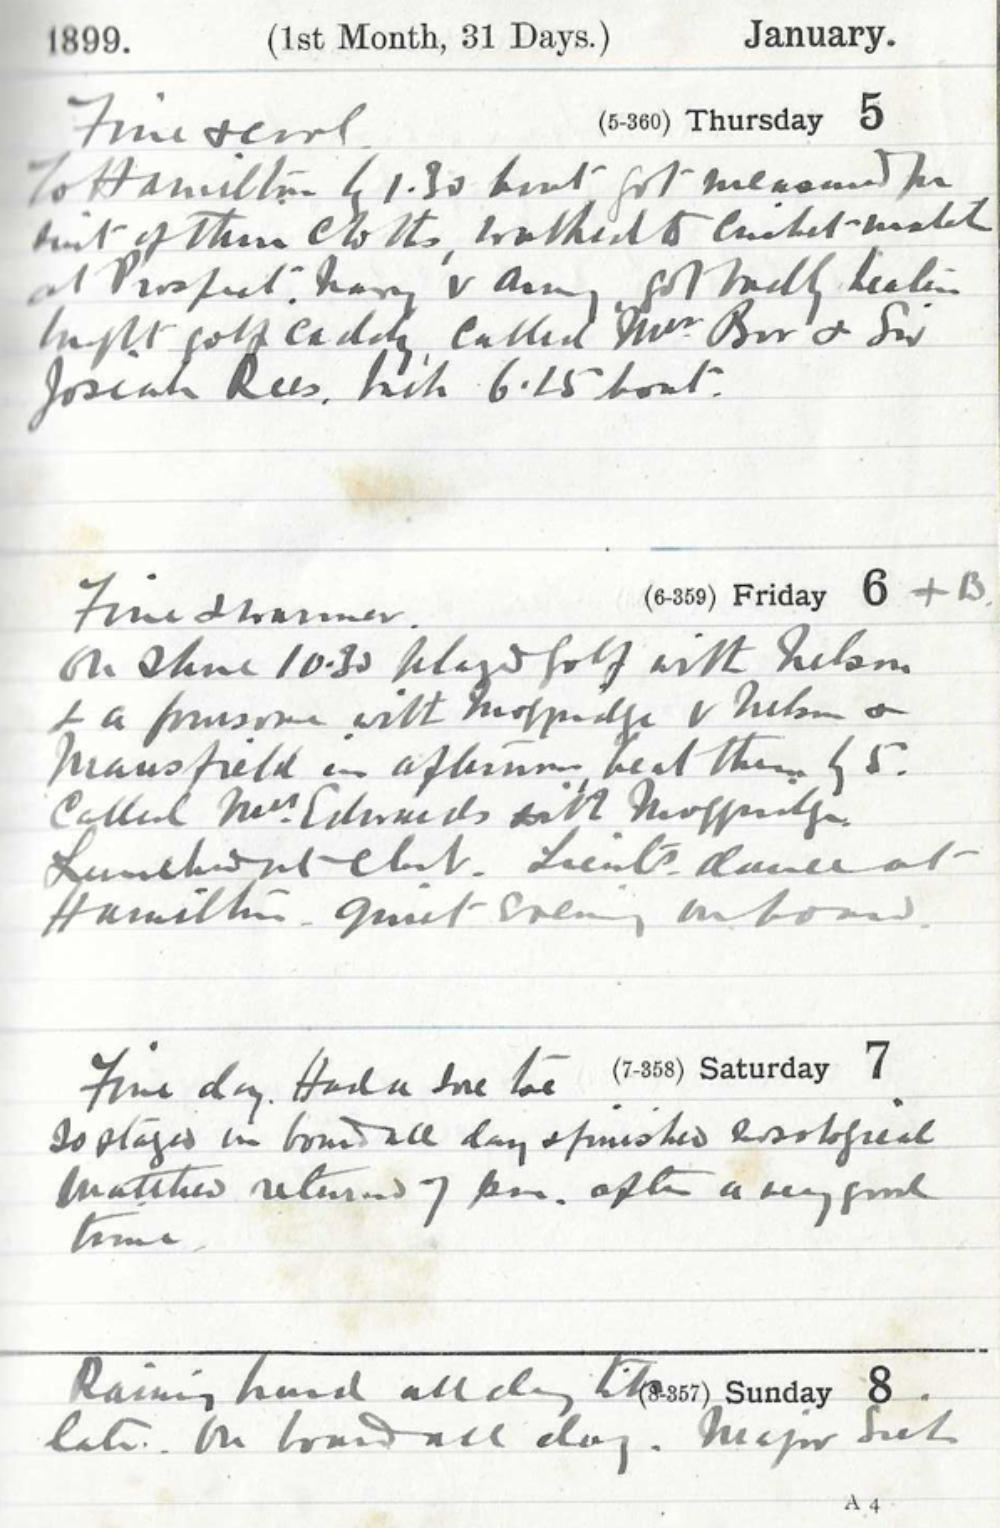 1899. (1st Month, 31 Days.) January.
(5-360) Thursday 5
Fine & cool.
To Hamilton by 1.30 boat got measured for
suit of thin cloths, walked to Cricket match
at Prospect. Navy v Army, got badly beaten
bought golf caddy, called Mrs Bor & Sir
Josiah Rees. 6.15 boat.
(6-359) Friday 6 + B.
Fine & warmer.
On shore 10.30 played golf with Nelson
& a foursome with Moggridge v Nelson &
Mansfield in afternoon, beat them by 5.
Called Mrs. Edwards with Moggridge.
Lunched at Club. Lieuts. dance at
Hamilton. quiet evening on board.
(7-358) Saturday 7
Fine day. Had a sore toe
so stayed on board all day & finished
returned 7 pm. after a very good
time.
(8-357) Sunday 8.
Raining hard all day till
late. On board all day. Major
A 4